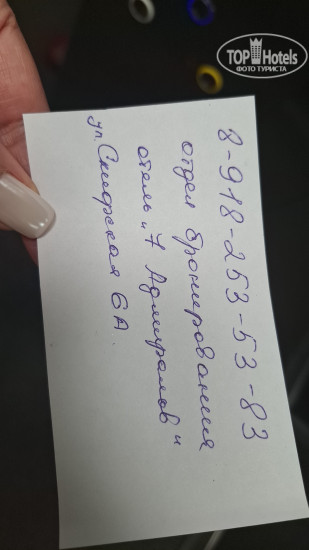 TOP Hotels
ФОТО ТУРИСТА
8-918-253-53-83
отдел бронирования
отель „7 Адмиралов"
ул. Скифская 6А.